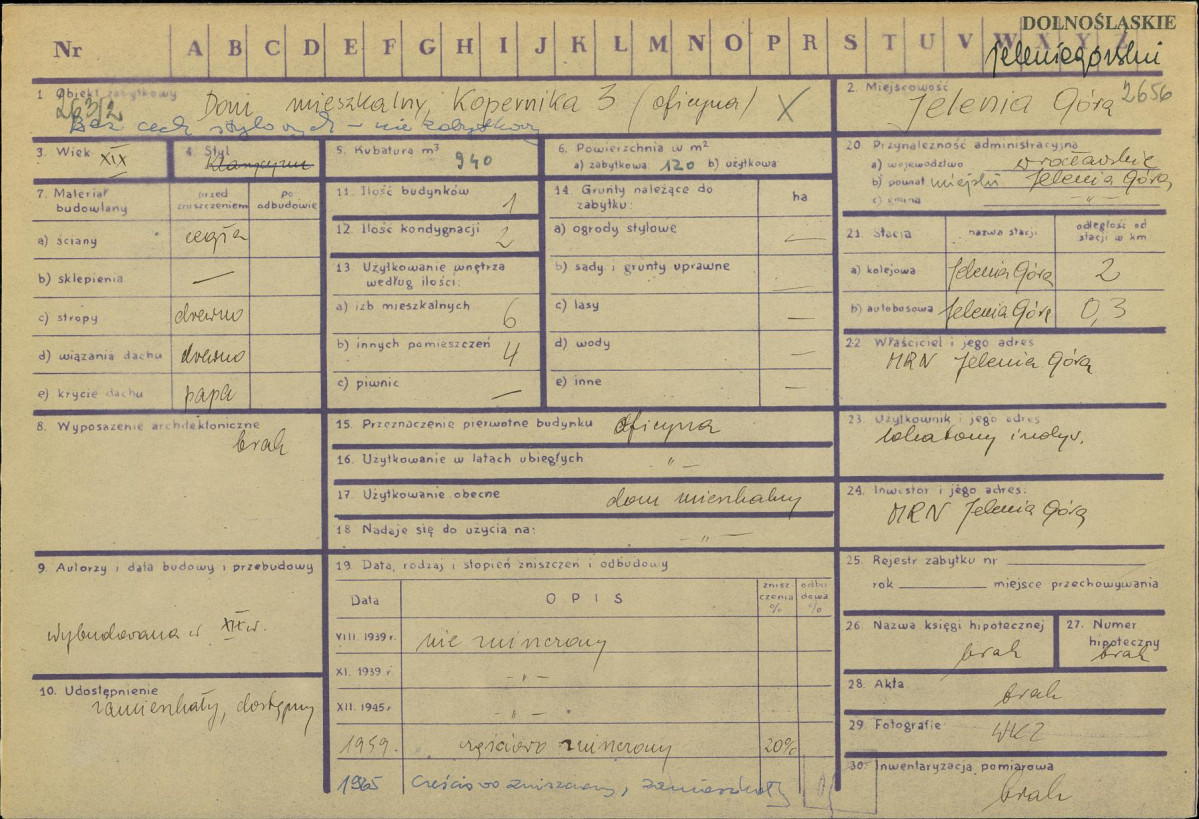 DOLNOŚLASKIE
Nr A B C D E F G H I J K L M N O P R S T U V W X Y Z
Jeleniogórski
1 Obiekt zabytkowy
263/2
Dom mieszkalny, Kopernika 3 (oficyna) X
Bez cech stylowych - nie zabytkowy
2. Miejscowość
Jelenia Góra 2656
3. Wiek XIX
4. Styl
5. Kubatura m³ 940
6. Powierzchnia w m²
a) zabytkowa: 120 b) użytkowa:
20 Przynależność administracyjna
a) województwo wrocławskie
b) powiat miejski Jelenia Góra
c) gmina -"-
7. Materiał budowlany
przed zniszczeniem
po odbudowie
a) ściany cegła
b) sklepienia —
c) stropy drewno
d) wiązania dachu drewno
e) krycie dachu papa
11. Ilość budynków 1
12. Ilość kondygnacji 2
13 Użytkowanie wnętrza według ilości:
a) izb mieszkalnych 6
b) innych pomieszczeń 4
c) piwnic —
14. Grunty należące do zabytku:
ha
a) ogrody stylowe —
b) sady i grunty uprawne —
c) lasy —
d) wody —
e) inne —
21. Stacja
nazwa stacji
odległość od stacji w km
a) kolejowa Jelenia Góra 2
b) autobusowa Jelenia Góra 0,3
22 Właściciel i jego adres
MRN Jelenia Góra
8. Wyposażenie architektoniczne
brak
15. Przeznaczenie pierwotne budynku oficyna
16. Użytkowanie w latach ubiegłych -"-
17. Użytkowanie obecne dom mieszkalny
18 Nadaje się do użycia na: -"-
23. Użytkownik i jego adres
lokatorzy indyw.
24. Inwestor i jego adres:
MRN Jelenia Góra
9. Autorzy i data budowy i przebudowy
wybudowana w XIX w.
10. Udostępnienie
zamieszkały, dostępny
19. Data, rodzaj i stopień zniszczeń i odbudowy
Data
OPIS
zniszczenia %
odbudowa %
VIII 1939 r. nie zniszczony
XI. 1939 r. -"-
XII. 1945 r. -"-
1959. częściowo zniszczony 20%
1965 Częściowo zniszczony, zamieszkały
25. Rejestr zabytku nr
rok miejsce przechowywania
26. Nazwa księgi hipotecznej
brak
27. Numer hipoteczny
brak
28. Akta
brak
29. Fotografie
WKZ
30. Inwentaryzacja pomiarowa
brak